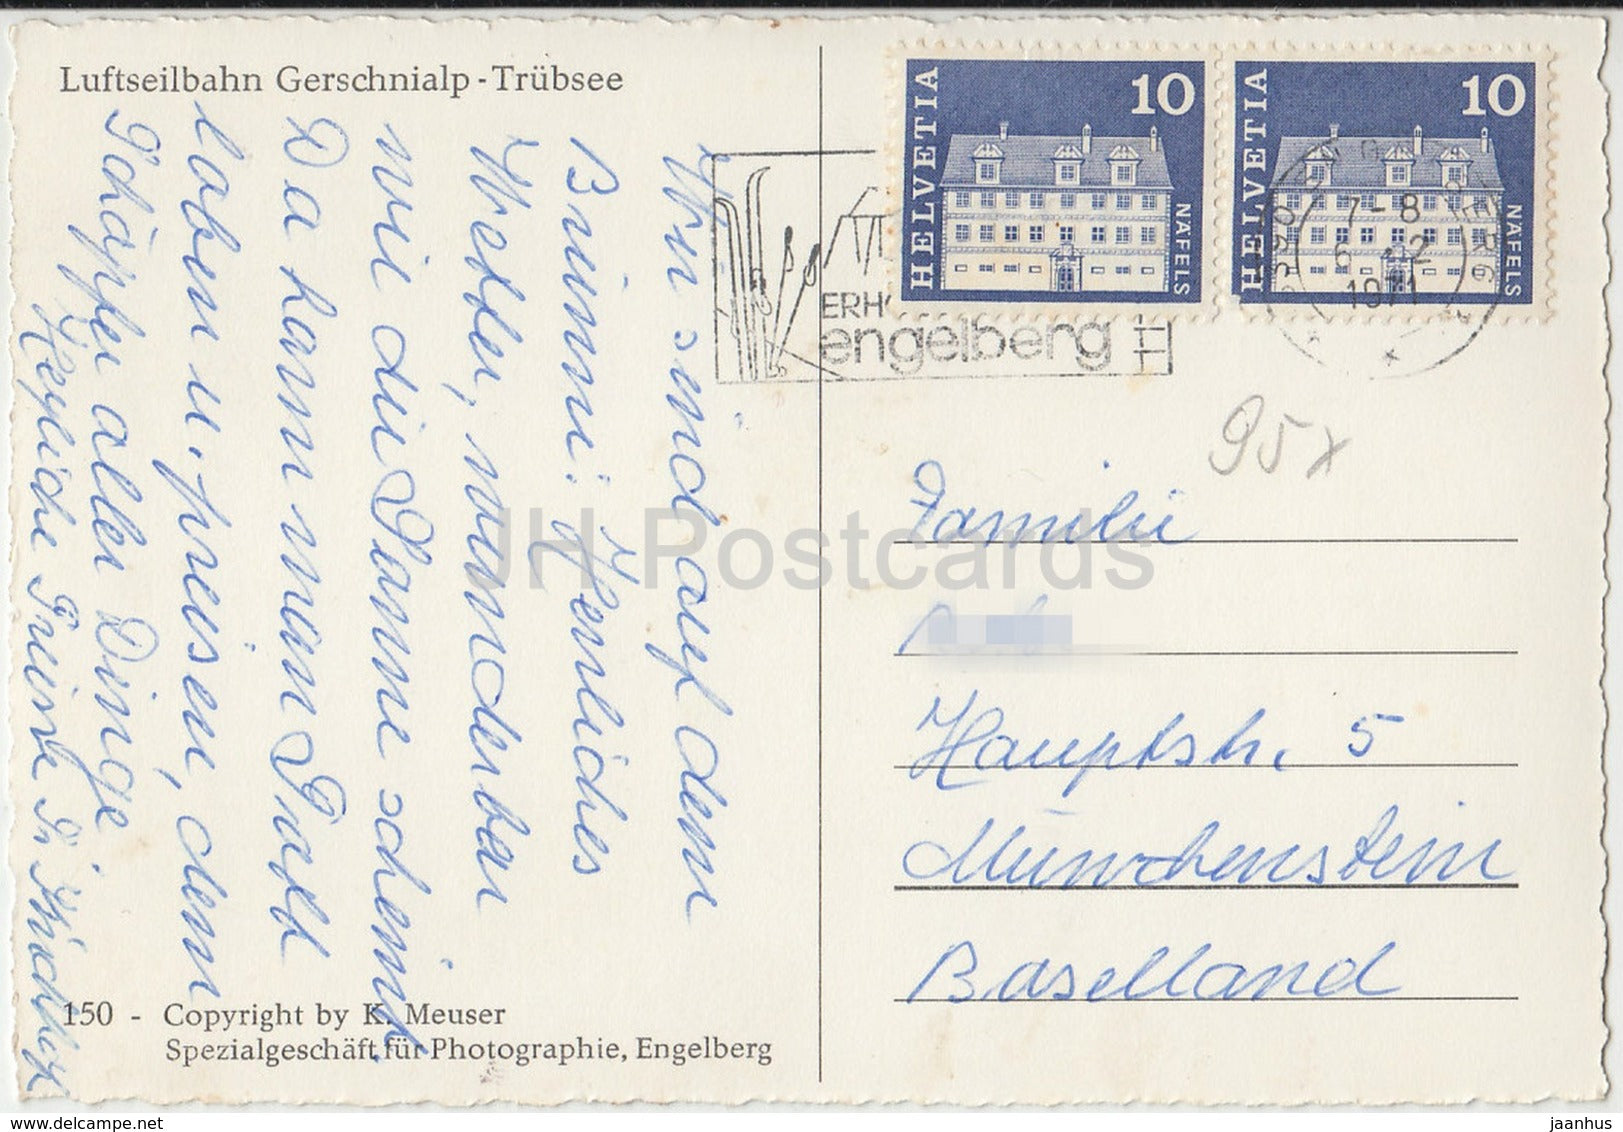 Luftseilbahn Gerschnialp - Trübsee
Wir sind auf dem
Brunni. Herrliches
Wetter, wunderbar
wie die Sonne scheint.
Da kann man Gott
loben u. preisen, dem
Schöpfer aller Dinge
Herzliche Grüsse
150 - Copyright by K. Meuser
Spezialgeschäft für Photographie, Engelberg
HELVETIA 10 NÄFELS
HELVETIA 10 NÄFELS
engelberg
7-8
1971
95x
Familie
Hauptstr. 5
Münchenstein
Baselland
JH Postcards
www.delcampe.net
jaanhus